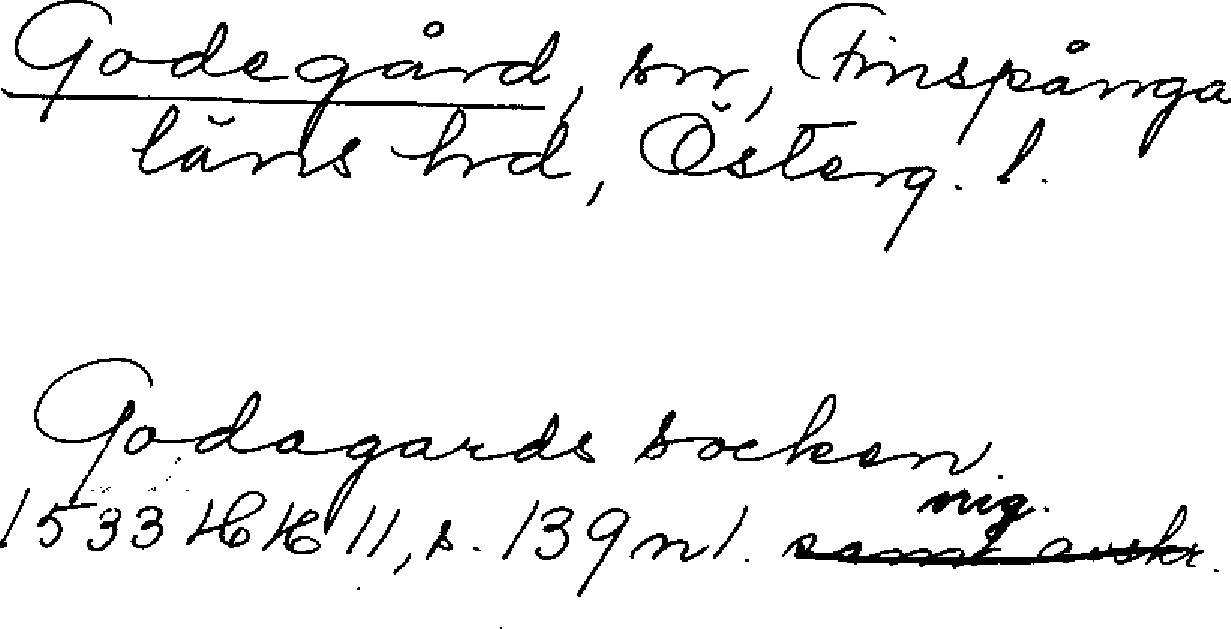 Godegård, sn, Finspånga
läns hd, Österg. l.
Godagards socken
orig.
1533 HH 11, s. 139 n 1. samt avskr.